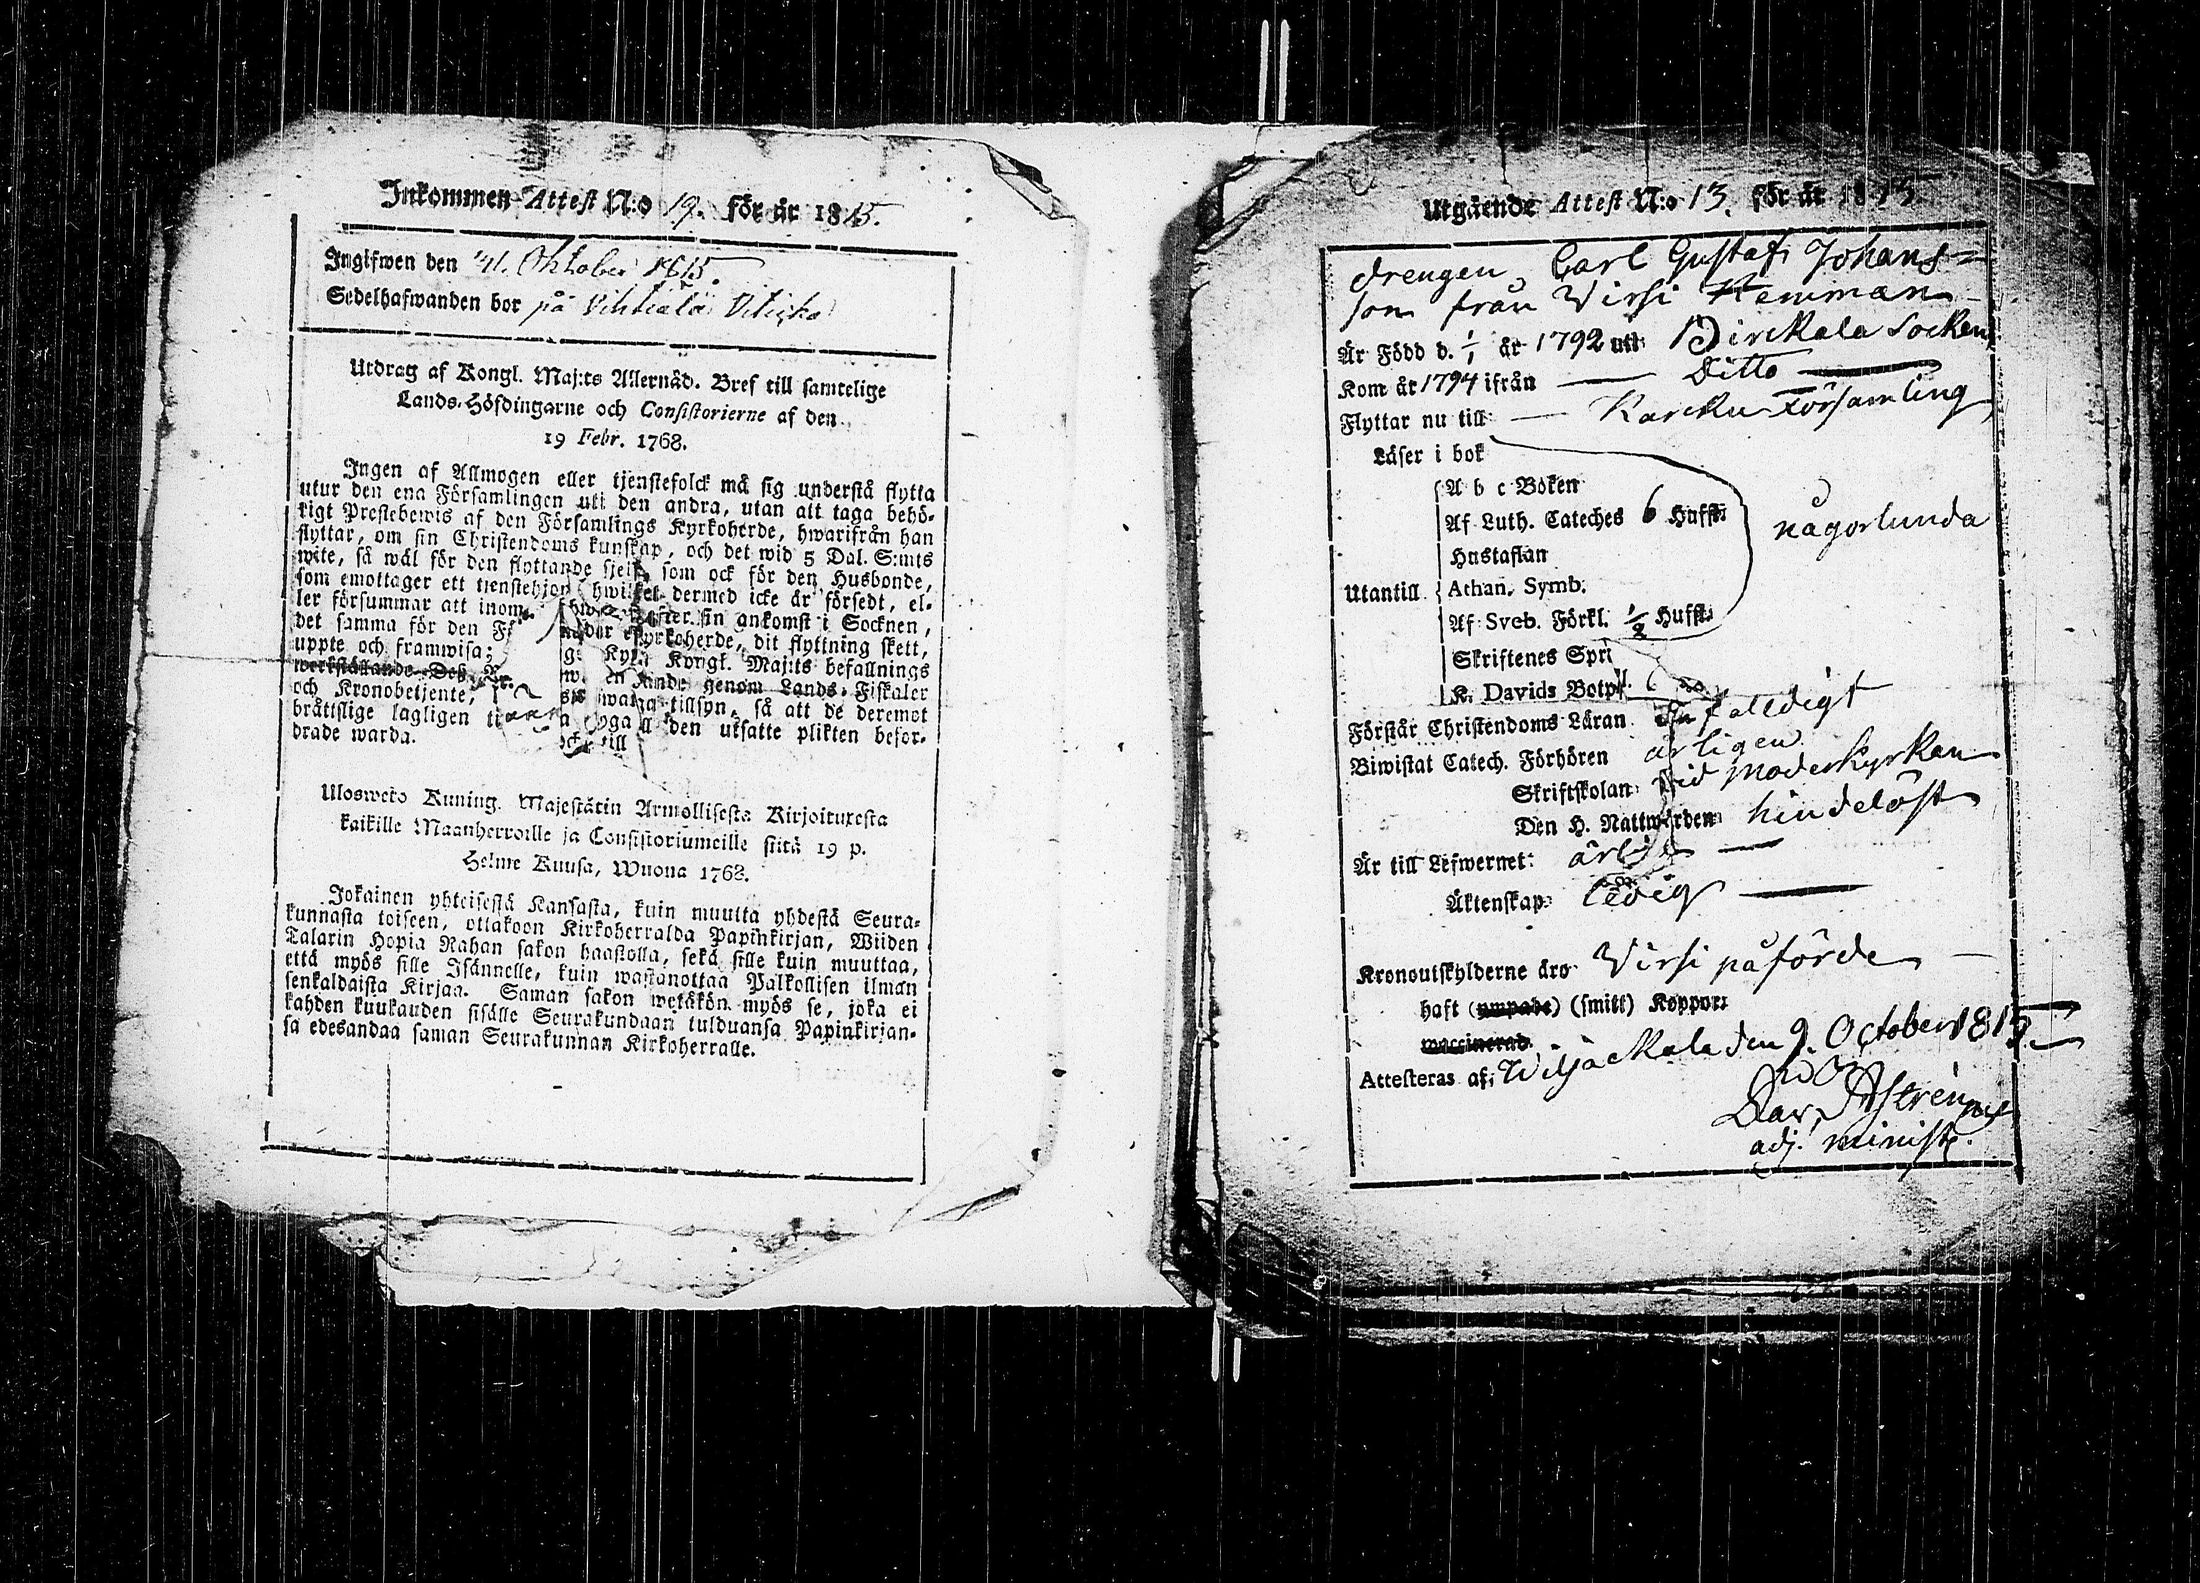 Inkommen Attest N:o 19. för år 1815.
Ingifwen den Oktober 1815.
Sedelhafwanden bor på
Utdrag af Kongl. Maj:ts Allernåd. Bref till samtelige
Lands-Höfdingarne och Consistorierne af den
19 Febr. 1768.
Ingen af Allmogen eller tjenstefolck må sig understå flytta
utur den ena Församlingen uti den andra, utan att taga behö-
rigt Prestebewis af den Församlings Kyrkoherde, hwarifrån han
flyttar, om sin Christendoms kunskap, och det wid 5 Dal. S:mts
wite, så wäl för den flyttande sjelf, som ock för den Husbonde,
som emottager ett tienstehjon hwilket dermed icke är försedt, el-
ler försummar att inom efter sin ankomst i Socknen,
det samma för den Kyrkoherde, dit flyttning skett,
uppte och framwisa; Kongl. Maj:ts befallnings
werkställande genom Lands-Fiskaler
och Kronobetjente, tillsyn, så att de deremot
bråttslige lagligen den utsatte plikten befor-
drade warda.
Ulosweto Kuning. Majestätin Armollisesta Kirjoituxesta
kaikille Maanherroille ja Consistoriumeille siitä 19 p.
Helme Kuusa, Wuona 1768.
Jokainen yhteisestä Kansasta, kuin muutta yhdestä Seura-
kunnasta toiseen, ottakoon Kirkoherralda Papinkirjan, Wiiden
Talarin Hopia Rahan sakon haastolla, sekä sille kuin muuttaa,
että myös sille Isännelle, kuin wastanottaa Palkollisen ilman
senkaldaista Kirjaa. Saman sakon wetäkön myös se, joka ei
kahden kuukauden sisälle Seurakundaan tulduansa Papinkirjan-
sa edesandaa saman Seurakunnan Kirkoherralle.
Utgående Attest N:o 13. för år 1815
drengen Carl Gustaf Johans=
son från Virsi Hemman
Är Född d. 1/1 år 1792 uti Birckala Socken
Kom år 1794 ifrån Ditto
Flyttar nu till Karcku Församling
Läser i bok
A b c Boken
Af Luth. Cateches 6 Hufst:
någorlunda
Hustaflan
Utantill Athan. Symb.
Af Sveb. Förkl. 1/2 Hufst:
Skriftenes Spr
K. Davids Botp
Förstår Christendoms Läran enfalldigt
Biwistat Catech. Förhören årligen
Skriftskolan vid Moderkyrkan
Den H. Nattwarden hindelöst
Är till Lefwernet: ärlig
Äktenskap: ledig
Kronoutskylderne äro Virsi påförde
haft (ympade) (smitt) Koppor:
waccinerad.
Attesteras af: Wiljackala den 9. October 1815.
Dav. Astrén
adj. minist.